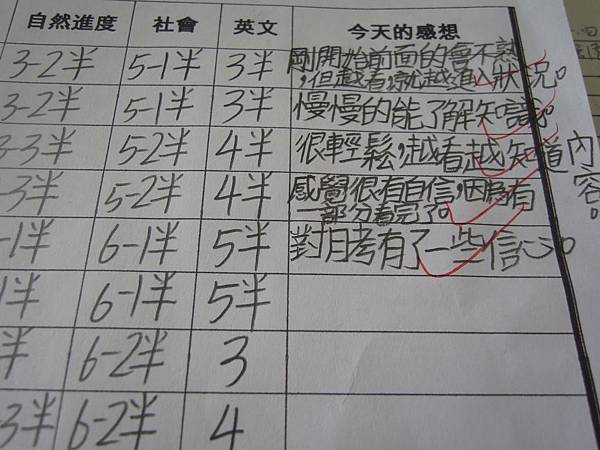 自然進度 社會 英文 今天的感想
3-2半 5-1半 3半 剛開始前面的會不熟
,但越看,就越進入狀況。
3-2半 5-1半 3半 慢慢的能了解知識。
3-3半 5-2半 4半 很輕鬆,越看越知道內容。
-3半 5-2半 4半 感覺很有自信,因為有
一部分看完了。
-1半 6-1半 5半 對月考有了一些信心。
1半 6-1半 5半
半 6-2半 3
-3半 6-2半 4